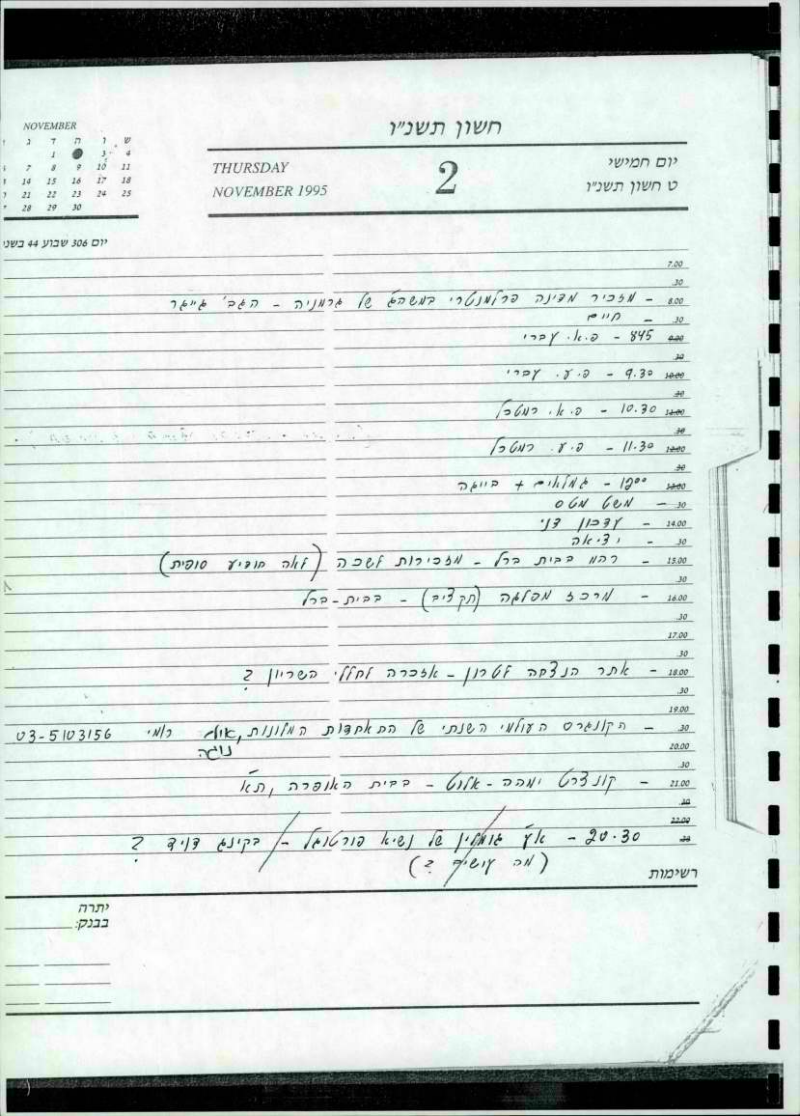 חשון תשנ"ו
יום חמישי
ט חשון תשנ"ו
2
THURSDAY
NOVEMBER 1995
NOVEMBER
ש ו ה ד ג
4 3 2 1
11 10 9 8 7
18 17 16 15 14
25 24 23 22 21
30 29 28
יום 306 שבוע 44 בשנ
7.00
30
8.00 - מזכיר מדינה פרלמנטרי במשהג של גרמניה - הגב' גייגר
30 - חיים
9.00 845 - פ.א. עברי
30
10.00 9.30 - פ.ע. עברי
30
11.00 10.30 - פ.א. רמטכל
30
12.00 11.30 - פ.ע. רמטכל
30
13.00 - גמלאים + בייגה
30 - משט מטס
14.00 - עדכון דני
30 - יציאה
15.00 - רהמ בבית ברל - מזכירות לשכה (לאה תודיע סופית)
30
16.00 - מרכז מפלגה (תקציב) - בבית-ברל
30
17.00
30
18.00 - אתר הנצחה לטרון - אזכרה לחללי השריון ?
30
19.00
30 - הקונגרס העולמי השנתי של התאחדות המלונות, רומי 03-5103156
20.00 נוגה
30
21.00 - קונצרט ימהה - אלוט - בבית האופרה, תא
30
22.00
30 20.30 - אע גומלין של נשיא פורטוגל - בקינג דויד ?
(מה עושים ?)
רשימות
יתרה
בבנק: